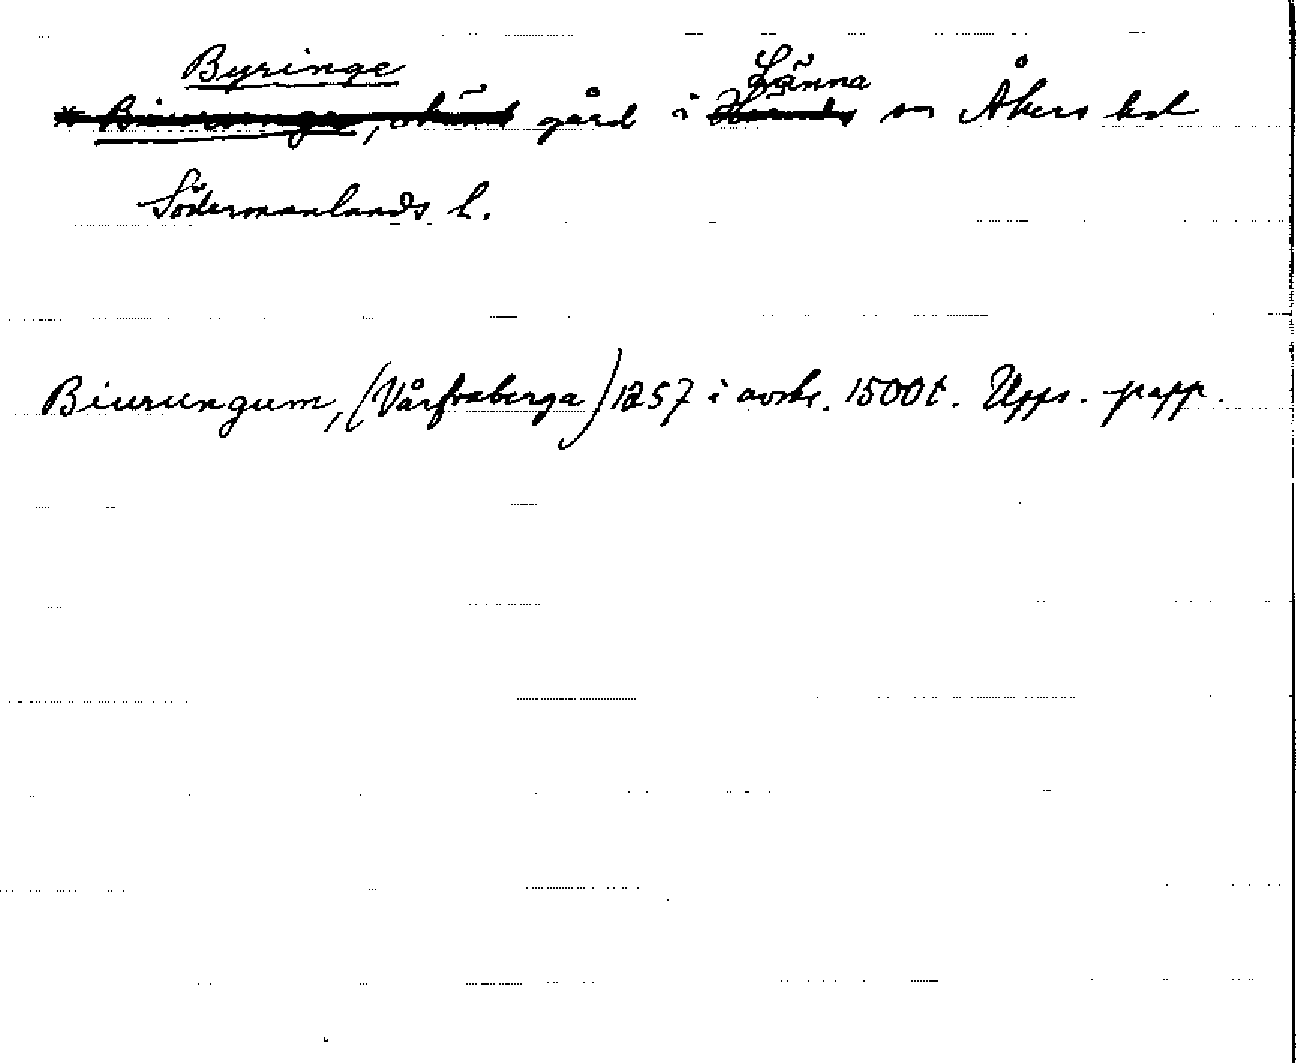 Byringe Länna
* Biurunge, okänd gård i sn Åkers hd
Södermanlands l.
Biurungum, (Vårfruberga) 1257 i avskr. 1500t. Upps. papp.